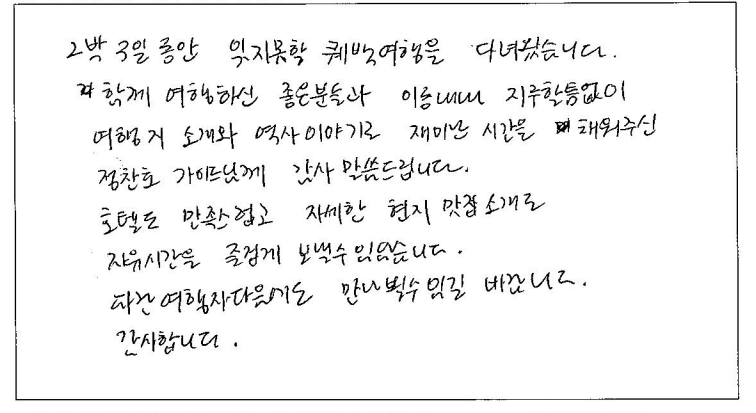 2박 3일 동안 잊지못할 퀘벡여행을 다녀왔습니다.
함께 여행하신 좋은분들과 이동내내 지루할틈없이
여행지 소개와 역사이야기로 재미난 시간을 채워주신
정찬호 가이드님께 감사 말씀드립니다.
호텔도 만족스럽고 자세한 현지 맛집소개로
자유시간을 즐겁게 보낼수있었습니다.
다음에도 만나뵐수있길 바랍니다.
감사합니다.